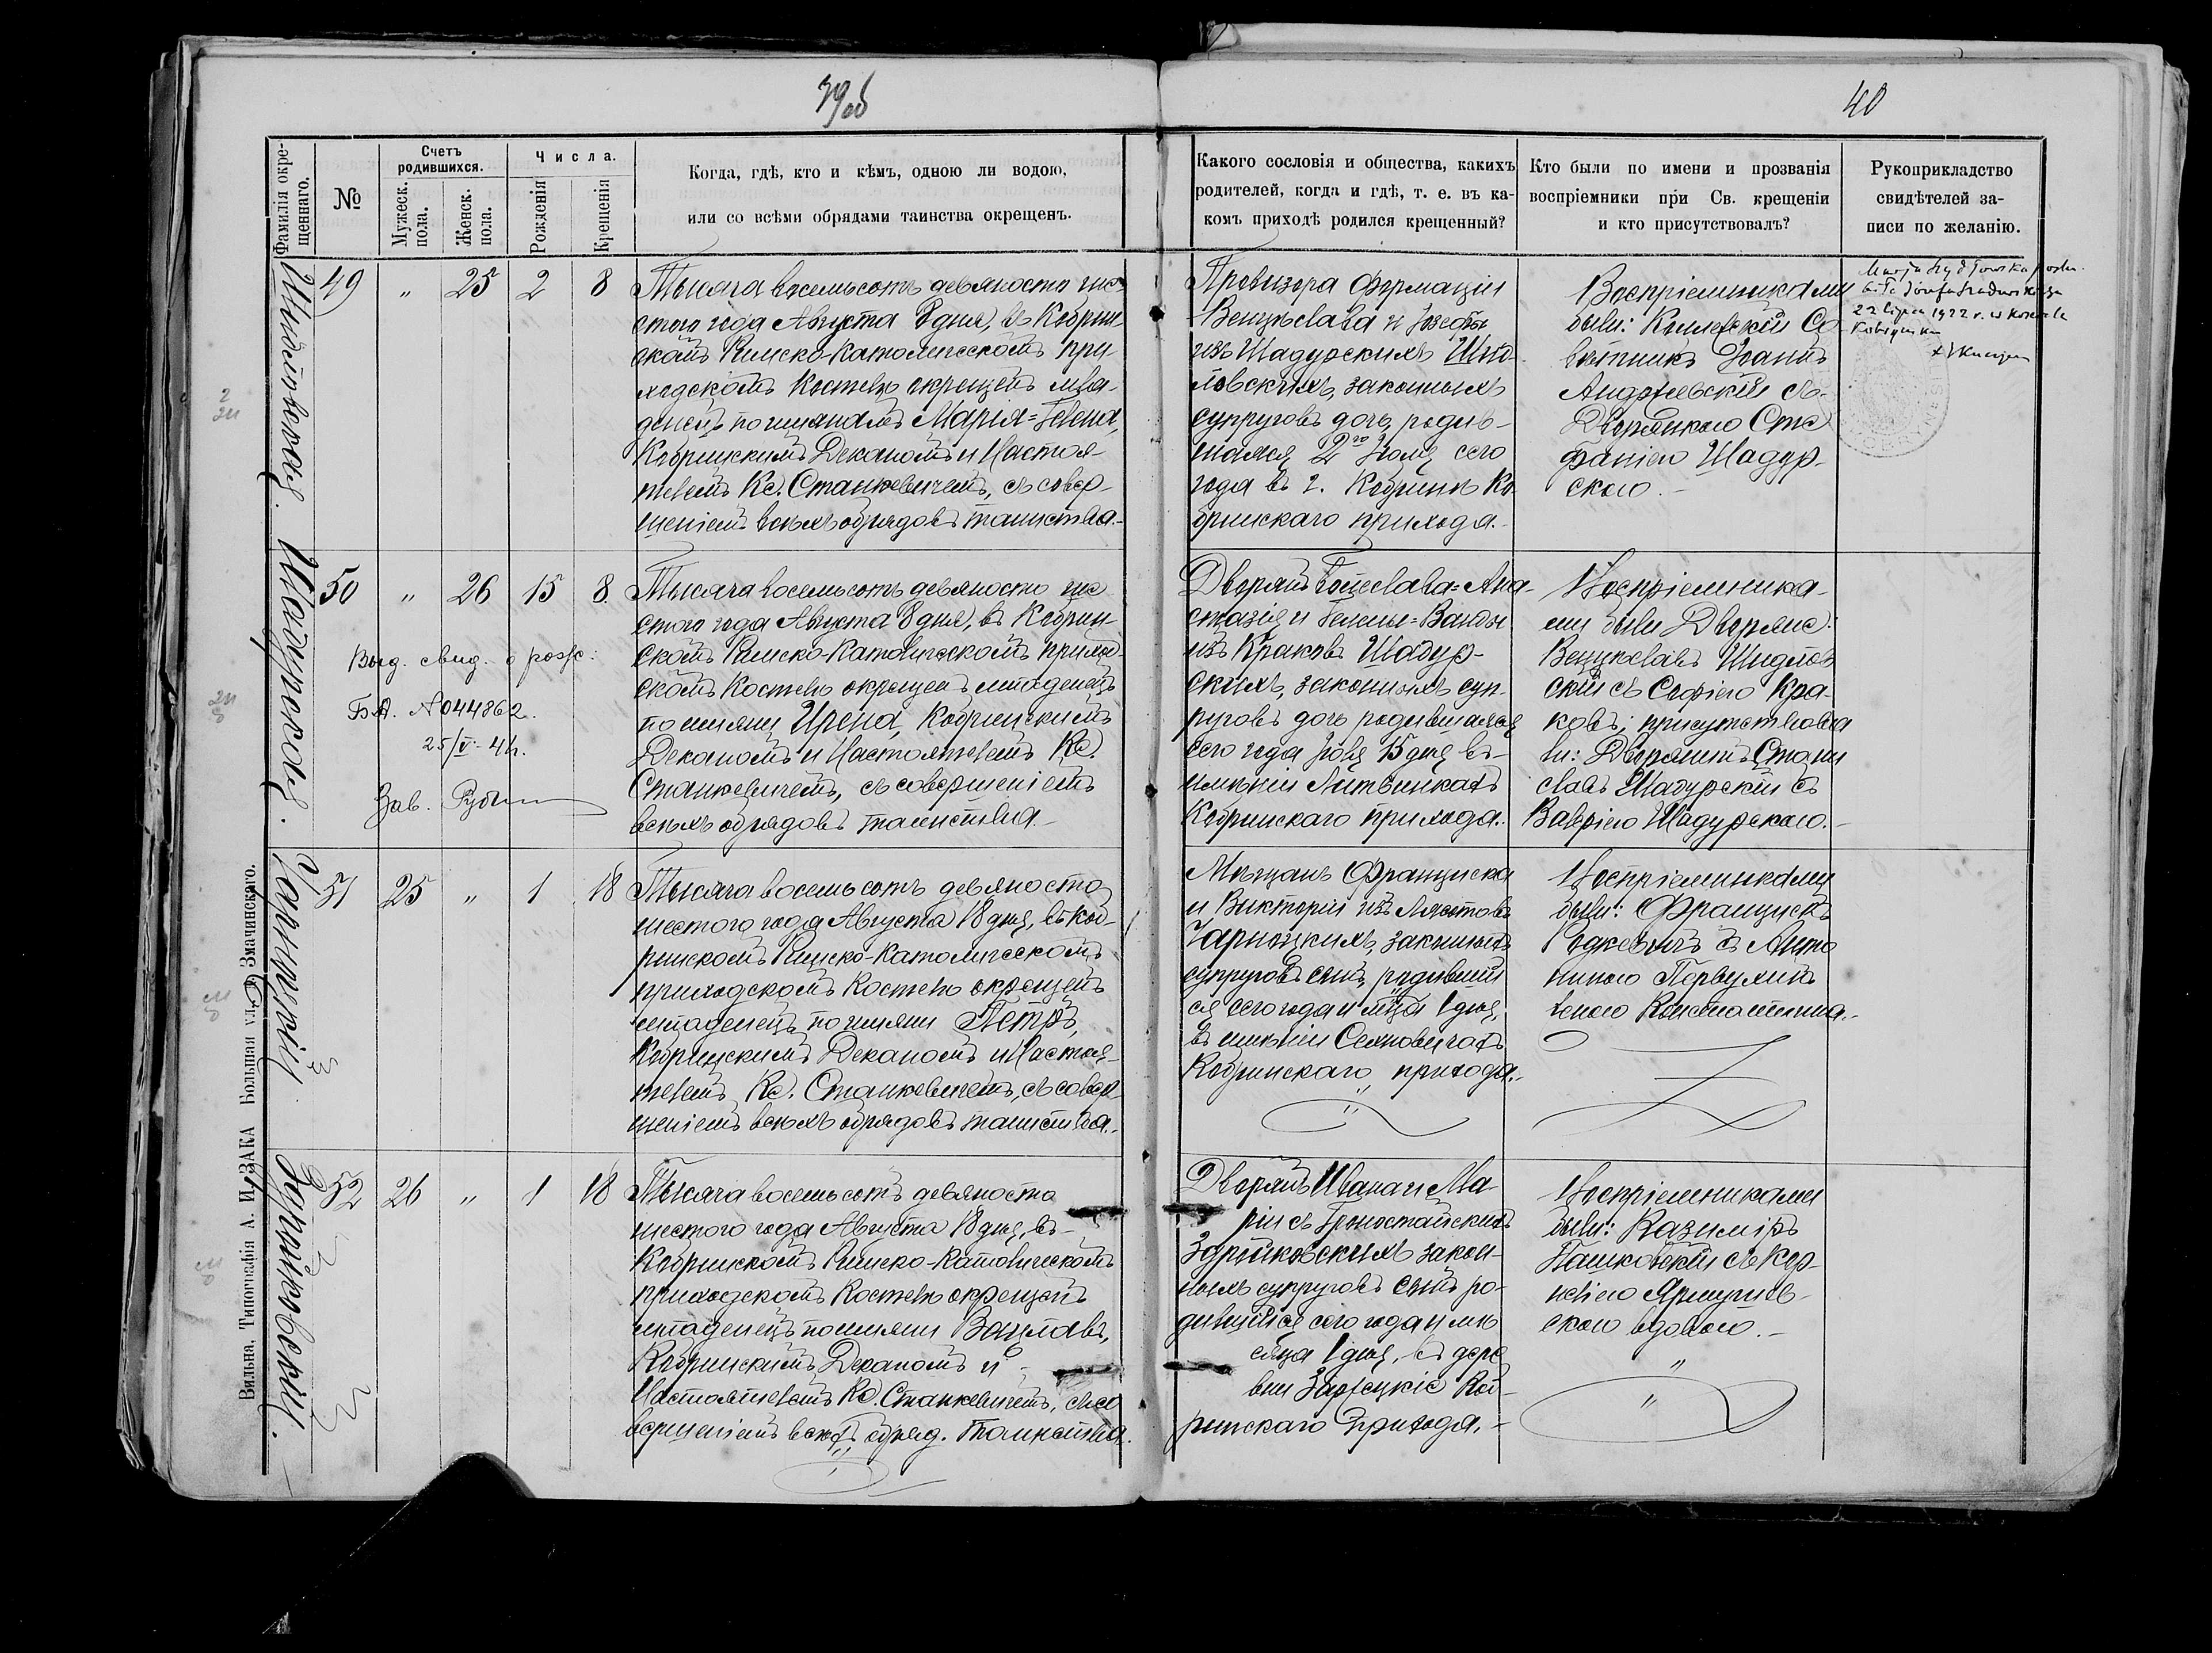 39об
40
Фамилія окре-
щеннаго.
№
Счетъ
родившихся.
Мужеск.
пола.
Женск.
пола.
Числа.
Рожденія
Крещенія
Когда, гдѣ, кто и кѣмъ, одною ли водою,
или со всѣми обрядами таинства окрещенъ.
Какого сословія и общества, какихъ
родителей, когда и гдѣ, т. е. въ ка-
комъ приходѣ родился крещенный?
Кто были по имени и прозванія
воспріемники при Св. крещеніи
и кто присутствовалъ?
Рукоприкладство
свидѣтелей за-
писи по желанію.
Шидловская.
49 " 25 2 8
Тысяча восемьсотъ девяносто ше-
стого года Августа 8 дня, въ Кобрин-
скомъ Римско-Католическомъ при-
ходскомъ Костелѣ окрещенъ мла-
денецъ по именамъ Марія=Гелена,
Кобринскимъ Деканомъ и Настоя-
телемъ Кс. Станкевичемъ, съ совер-
шеніемъ всѣхъ обрядовъ таинства.-
Провизора Фармаціи
Венцѣслава и Іозефы
изъ Шадурскихъ Шид-
ловскихъ, законныхъ
супруговъ дочь, родив-
шаяся 2го Іюля сего
года въ г. Кобринѣ Ко-
бринскаго прихода.-
Воспріемниками
были: Коллежскій Со-
вѣтникъ Іоаннъ
Андржеевскій съ
Дворянкою Сте
фаніею Шадур-
скою.-
Marja Szydłowska poślu-
biła Józefa
22 lipca 1922 r. w Kościele
Kobryńskim
Шадурская.
50 " 26 15 8.
Выд. свид. о рожд:
БА. №044862.
25/V-4
Зав.
Тысяча восемьсотъ девяносто ше
стого года Августа 8 дня, въ Кобрин-
скомъ Римско-Католическомъ приход
скомъ Костелѣ окрещенъ младенецъ
по имени Ирена, Кобринскимъ
Деканомъ и Настоятелемъ Кс.
Станкевичемъ, съ совершеніемъ
всѣхъ обрядовъ таинства.-
Дворянъ Болеслава=Ана-
стазія и Гелены=Ванды
изъ Краковъ Шадур-
скихъ, законныхъ суп-
руговъ дочь родившаяся
сего года Іюля 15 дня въ
имѣніи Литвинкахъ
Кобринскаго прихода.-
Воспріемника-
ми были Дворяне:
Венцѣславъ Шидлов
скій съ Софіею Кра-
ковъ; присутствова
ли: Дворянинъ Стани
славъ Шадурскій съ
Валеріею Шадурскою.-
Чарноцкій.
51 25 " 1 18
Тысяча восемьсотъ девяносто
шестого года Августа 18 дня, въ Коб-
ринскомъ Римско-Католическомъ
приходскомъ Костелѣ окрещенъ
младенецъ по имени Петръ,
Кобринскимъ Деканомъ и Настоя-
телемъ Кс. Станкевичемъ, съ совер-
шеніемъ всѣхъ обрядовъ таинства.-
Мѣщанъ Франциска
и Викторіи изъ
Чарноцкихъ, законныхъ
супруговъ сынъ, родивший
ся сего года и мѣсяца 1 дня,
въ имѣніи
Кобринскаго прихода.-
Воспріемниками
были: Францискъ
съ Анто
ниною
женою Константина.-
52 26 " 1 18
Тысяча восемьсотъ девяносто
шестого года Августа 18 дня, въ
Кобринскомъ Римско-Католическомъ
приходскомъ Костелѣ окрещенъ
младенецъ по имени Вацлавъ,
Кобринскимъ Деканомъ и
Настоятелемъ Кс. Станкевичемъ, съ со
вершеніемъ всѣхъ обряд. Таинства.
Дворянъ Ивана и Ма-
ріи съ Гроностайскихъ
закон-
ныхъ супруговъ сынъ ро-
дившійся сего года и мѣ
сяца 1 дня, въ дере
вни Коб-
ринскаго прихода.-
Воспріемниками
были: Казиміръ
Пашковскій съ Кор-
неліею
скою вдовою.-
Вильна, Типографія А. И. ЗАКА Большая ул. д. Змачинскаго.